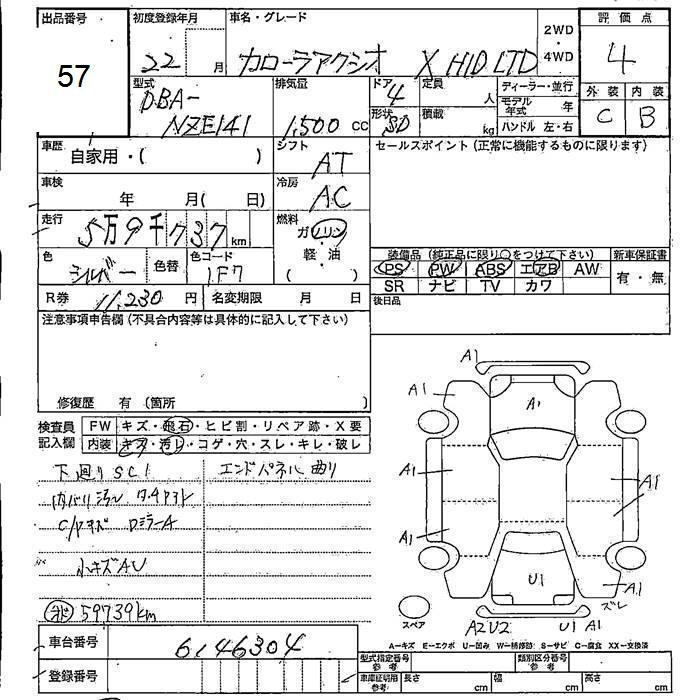 出品番号 初度登録年月 車名・グレード 2WD・4WD 評価点
57 22 月 カローラアクシオ X HID LTD 4
型式 排気量 ドア 定員 ディーラー・並行 外装 内装
DBA-NZE141 1,500 cc 4 人 モデル年式 年 C B
形状 SD 積載 kg ハンドル 左・右
車歴 自家用・( ) シフト AT セールスポイント(正常に機能するものに限ります)
車検 年 月( 日) 冷房 AC
走行 5万9千737km 燃料 ガソリン・軽・油 ( )
色 シルバー 色替 色コード 1F7
装備品(純正品に限り○をつけて下さい) 新車保証書
PS PW ABS エアB AW 有・無
SR ナビ TV カワ
R券 11,230 円 名変期限 月 日 後日品
注意事項申告欄(不具合内容等は具体的に記入して下さい)
修復歴 有(箇所 )
検査員記入欄 FW キズ・飛石・ヒビ割・リペア跡・X要
内装 キズ・汚レ・コゲ・穴・スレ・キレ・破レ
下廻りSC1 エンドパネル曲り
内バリ汚レ
C/Pキズ DミラーA
小キズAU
59739km
A1
A1 A1
A1 A1
A1
U1 A1
ズレ
スペア A2U2 U1 A1
A=キズ E=エクボ U=凹み W=補修跡 S=サビ C=腐食 XX=交換済
車台番号 6146304
型式指定番号 参考 類別区分番号 参考
登録番号 車庫証明用 参考 長さ cm 幅 cm 高さ cm